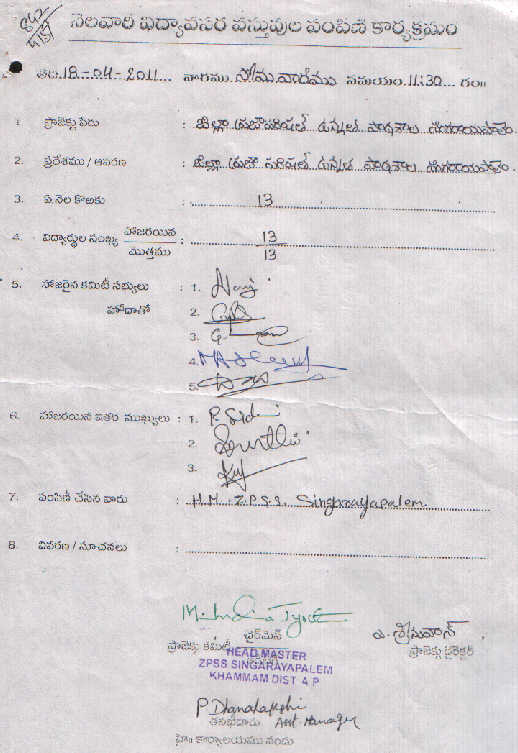 842
నెలవారి విద్యావసర వస్తువుల పంపిణీ కార్యక్రమం
తేది.18-04-2011... వారము సోమవారము సమయం.11:30... గం॥
1. ప్రాజెక్టు పేరు : జిల్లా ప్రజాపరిషత్ ఉన్నత పాఠశాల సింగరాయపాలెం.
2. ప్రదేశము / ఆవరణ : జిల్లా ప్రజా పరిషత్ ఉన్నత పాఠశాల సింగరాయపాలెం.
3. ఏ నెల కొఱకు : 13
4. విద్యార్థుల సంఖ్య హాజరయిన : 13
మొత్తము 13
5. హాజరైన కమిటీ సభ్యులు : 1.
హోదాతో 2.
3.
4.
5.
6. హాజరయిన ఇతర ముఖ్యులు : 1.
2.
3.
7. పంపిణీ చేసిన వారు : H.M. Z.P.S.S. Singarayapalem.
8. వివరణ / సూచనలు :
ఛైర్మెన్
ప్రాజెక్టు కమిటీ
ప్రాజెక్టు డైరెక్టర్
HEAD MASTER
ZPSS SINGARAYAPALEM
KHAMMAM DIST A P
P Dhanalakshmi
Asst Manager
హె॥ కార్యాలయము నందు